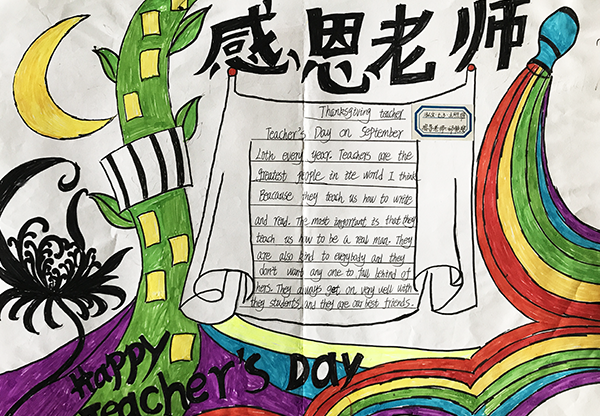 感恩老师
Thanksgiving teacher
Teacher's Day on September
10th every year. Teachers are the
greatest people in the world I think.
Beacause they teach us how to write
and read. The most important is that they
teach us how to be a real man. They
are also kind to everybody and they
don't want any one to fall behind of
hers. They always get on very well with
they students and they are our best friends.
Happy
Teacher's Day